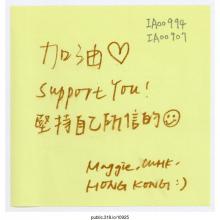 IA00994
IA00907
加油♡
Support You!
堅持自己所信的☺
Maggie, CUHK,
HONG KONG :)
public.318.io/10925